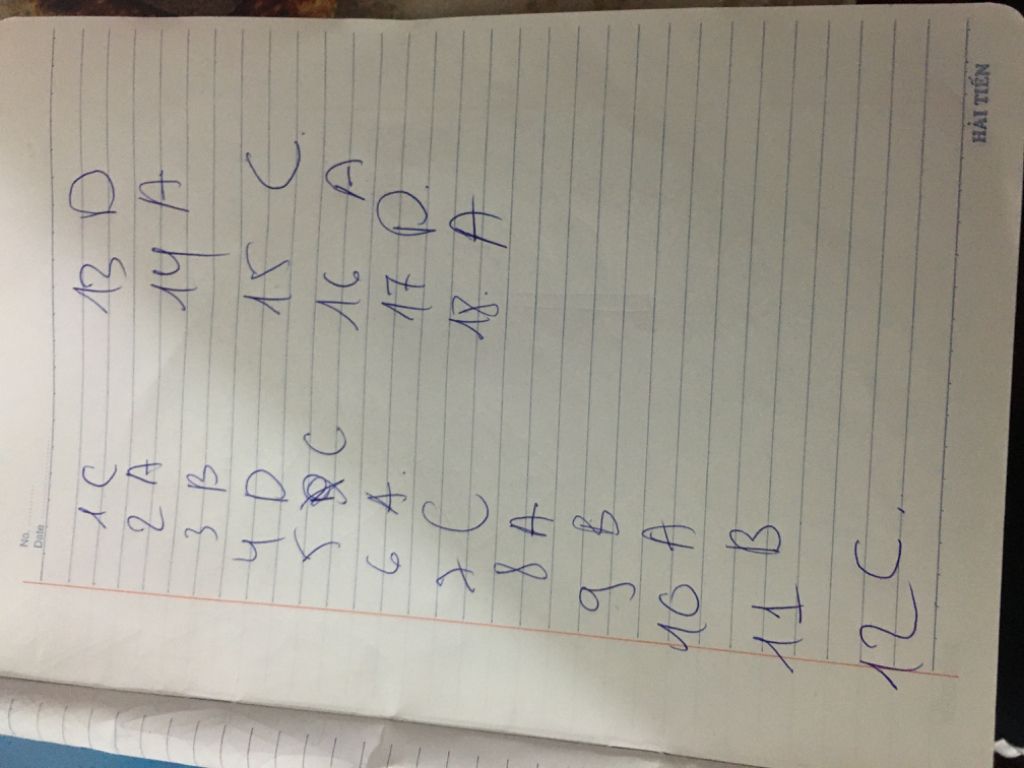 No.
Date
1 C
2 A
3 B
4 D
5 C
6 A.
7 C
8 A
9 B
10 A
11 B
12 C.
13 D
14 A
15 C.
16 A
17 D.
18. A
HẢI TIẾN